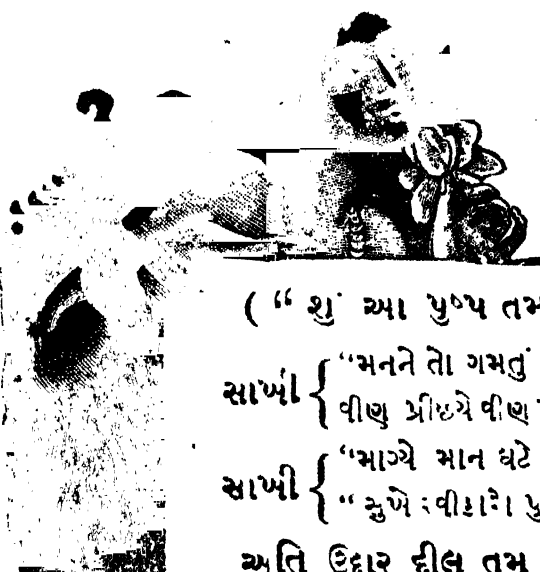 ( “ શું આ પુષ્પ તમ
સાખી { “મનને તો ગમતું
વીણ પ્રીછ્યે વીણ
સાખી { “માગ્યે માન ઘટે
“ સુખે સ્વીકારો પુ
અતિ ઉદાર દીલ તમ